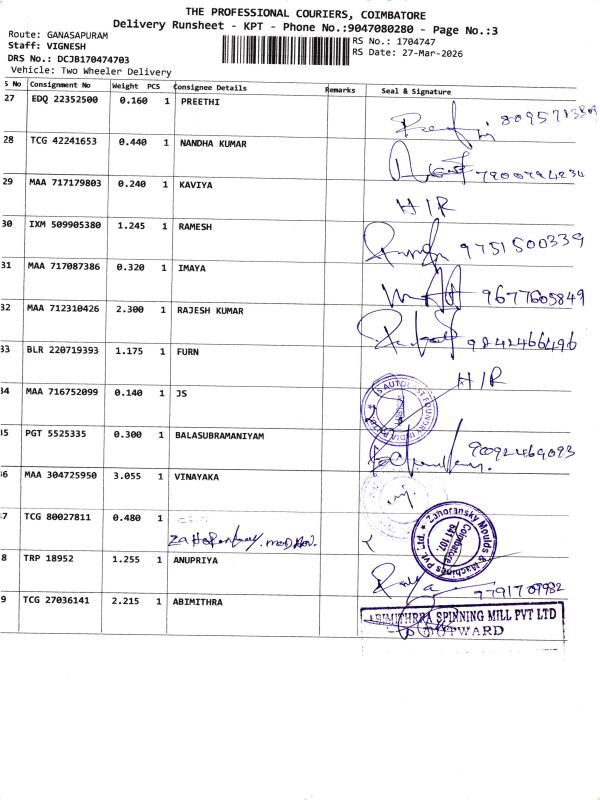 THE PROFESSIONAL COURIERS, COIMBATORE
Delivery Runsheet - KPT - Phone No.:9047080280 - Page No.:3
Route: GANASAPURAM
Staff: VIGNESH
DRS No.: DCJB170474703
Vehicle: Two Wheeler Delivery
RS No.: 1704747
RS Date: 27-Mar-2026
S No Consignment No Weight PCS Consignee Details Remarks Seal & Signature
27 EDQ 22352500 0.160 1 PREETHI
28 TCG 42241653 0.440 1 NANDHA KUMAR
29 MAA 717179803 0.240 1 KAVIYA H/R
30 IXM 509905380 1.245 1 RAMESH 9751500339
31 MAA 717087386 0.320 1 IMAYA 9677605849
32 MAA 712310426 2.300 1 RAJESH KUMAR 9842466496
33 BLR 220719393 1.175 1 FURN H/R
34 MAA 716752099 0.140 1 JS
35 PGT 5525335 0.300 1 BALASUBRAMANIYAM 9092469093
36 MAA 304725950 3.055 1 VINAYAKA
7 TCG 80027811 0.480 1
Zahoransky Moulds & Machines Pvt. Ltd. Coimbatore 641 107.
8 TRP 18952 1.255 1 ANUPRIYA 9791709982
9 TCG 27036141 2.215 1 ABIMITHRA
ABIMITHRAA SPINNING MILL PVT LTD
OUTWARD